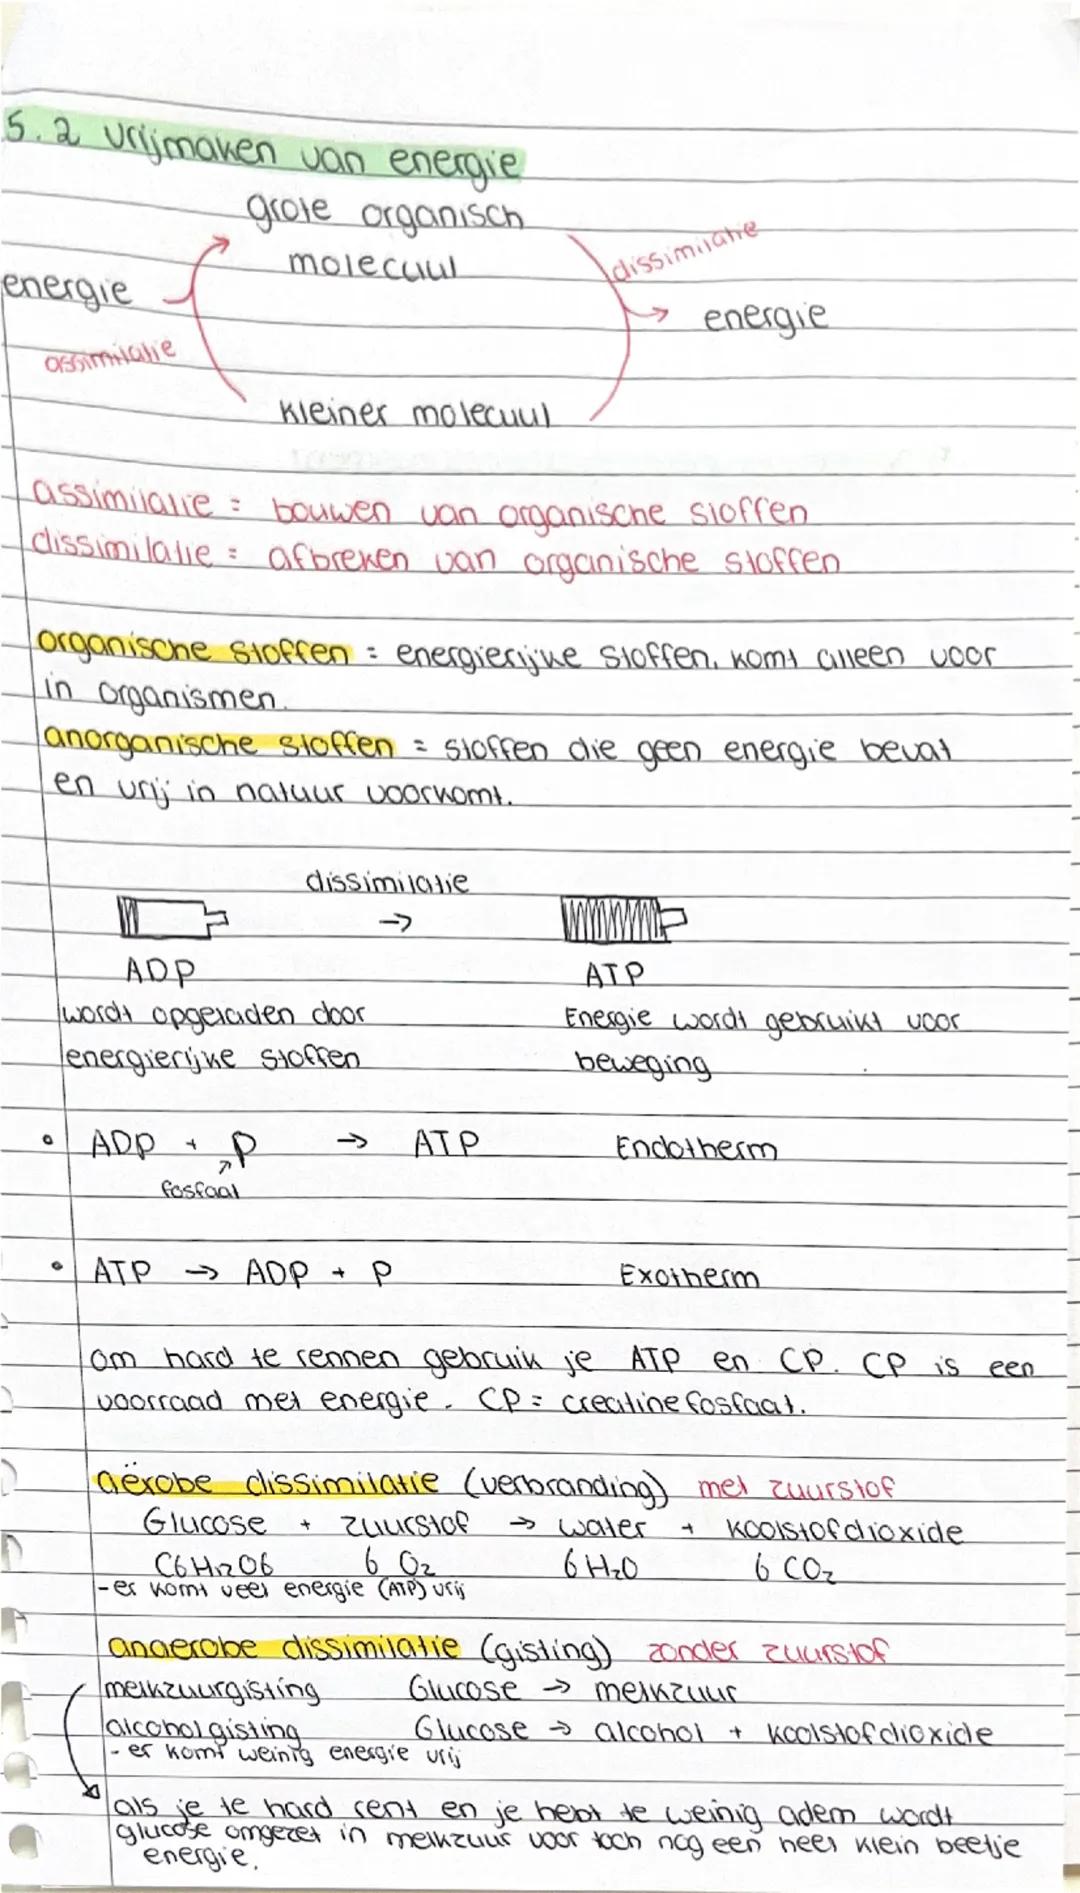 5.2 vrijmaken van energie
grote organisch
molecuul
dissimilatie
energie
energie
assimilatie
kleiner molecuul
assimilatie = bouwen van organische stoffen
dissimilatie = afbreken van organische stoffen
organische stoffen = energierijke stoffen, komt alleen voor
in organismen.
anorganische stoffen = stoffen die geen energie bevat
en vrij in natuur voorkomt.
dissimilatie
→
ADP ATP
wordt opgeladen door Energie wordt gebruikt voor
energierijke stoffen beweging
• ADP + P → ATP Endotherm
fosfaat
• ATP → ADP + P Exotherm
om hard te rennen gebruik je ATP en CP. CP is een
voorraad met energie. CP = creatine fosfaat.
aërobe dissimilatie (verbranding) met zuurstof
Glucose + zuurstof → water + koolstofdioxide
C6H12O6 6 O2 6 H2O 6 CO2
- er komt veel energie (ATP) vrij
anaerobe dissimilatie (gisting) zonder zuurstof
melkzuurgisting Glucose → melkzuur
alcoholgisting Glucose → alcohol + koolstofdioxide
- er komt weinig energie vrij
als je te hard rent en je hebt te weinig adem wordt
glucose omgezet in melkzuur voor toch nog een heel klein beetje
energie.